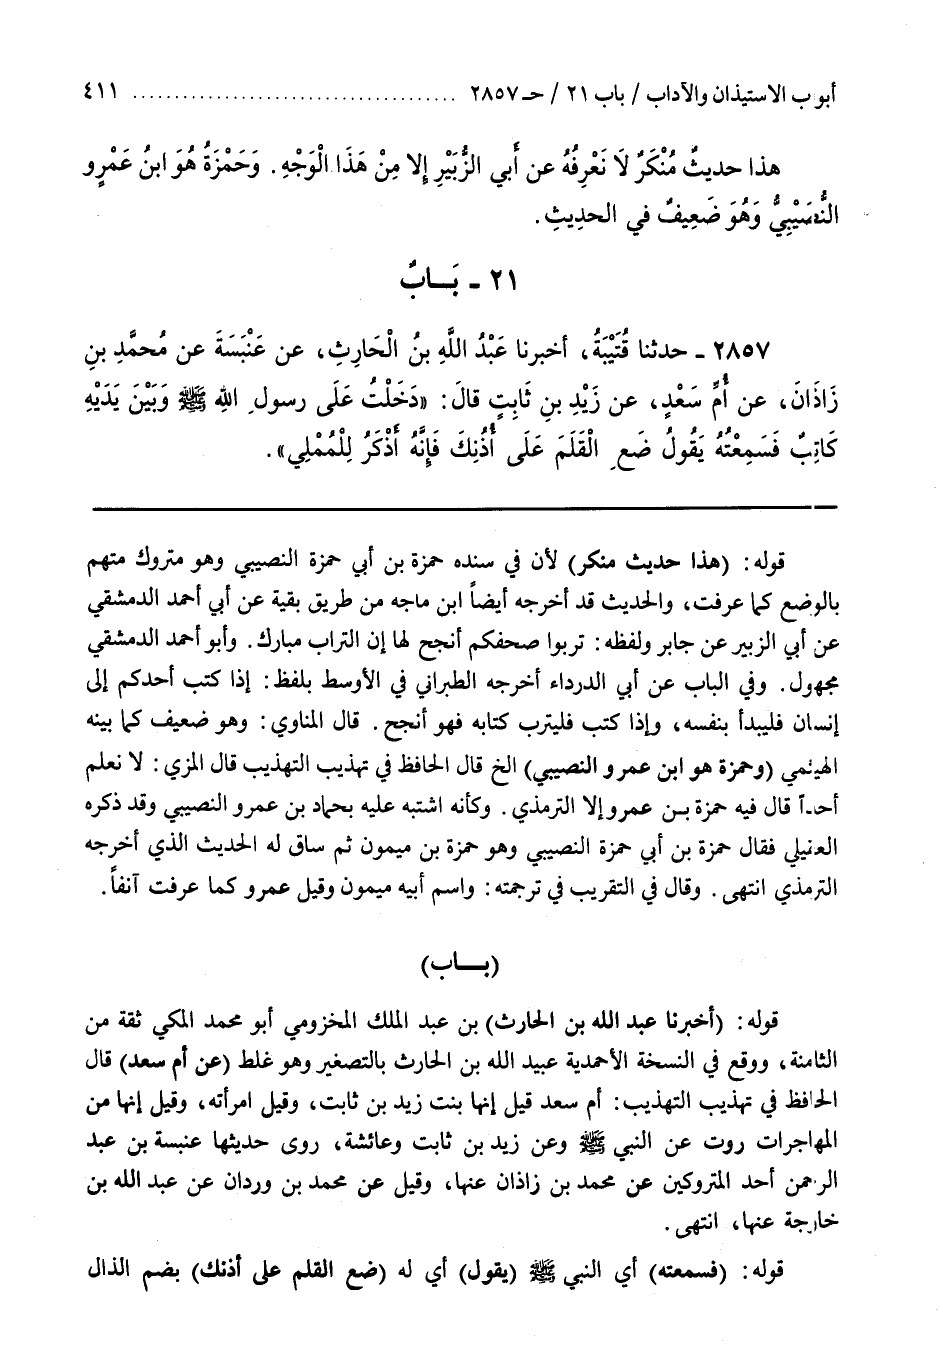 أبواب الاستيذان والآداب / باب ٢١ / حـ ٢٨٥٧ ....................................... ٤١١
هذا حديثٌ مُنْكَرٌ لَا نَعْرِفُهُ عن أَبي الزُّبَيْرِ إلا مِنْ هَذَا الْوَجْهِ. وَحَمْزَةُ هُوَ ابنُ عَمْرٍو
النُّصَيْبِيُّ وَهُوَ ضَعِيفٌ في الحدِيثِ.
٢١ - بَـــابٌ
٢٨٥٧ - حدثنا قُتَيْبَةُ، أخبرنا عَبْدُ اللَّهِ بنُ الْحَارِثِ، عن عَنْبَسَةَ عن مُحمَّدِ بنِ
زَاذَانَ، عن أُمِّ سَعْدٍ، عن زَيْدِ بنِ ثَابِتٍ قالَ: «دَخَلْتُ عَلَى رسولِ اللهِ ﷺ وَبَيْنَ يَدَيْهِ
كَاتِبٌ فَسَمِعْتُهُ يَقُولُ ضَعِ الْقَلَمَ عَلَى أُذُنِكَ فَإِنَّهُ أَذْكَرُ لِلْمُمْلِي».
قوله: (هذا حديث منكر) لأن في سنده حمزة بن أبي حمزة النصيبي وهو متروك متهم
بالوضع كما عرفت، والحديث قد أخرجه أيضاً ابن ماجه من طريق بقية عن أبي أحمد الدمشقي
عن أبي الزبير عن جابر ولفظه: تربوا صحفكم أنجح لها إن التراب مبارك. وأبو أحمد الدمشقي
مجهول. وفي الباب عن أبي الدرداء أخرجه الطبراني في الأوسط بلفظ: إذا كتب أحدكم إلى
إنسان فليبدأ بنفسه، وإذا كتب فليترب كتابه فهو أنجح. قال المناوي: وهو ضعيف كما بينه
الهيثمي (وحمزة هو ابن عمرو النصيبي) الخ قال الحافظ في تهذيب التهذيب قال المزي: لا نعلم
أحداً قال فيه حمزة بـن عمرو إلا الترمذي. وكأنه اشتبه عليه بحماد بن عمرو النصيبي وقد ذكره
العقيلي فقال حمزة بن أبي حمزة النصيبي وهو حمزة بن ميمون ثم ساق له الحديث الذي أخرجه
الترمذي انتهى. وقال في التقريب في ترجمته: واسم أبيه ميمون وقيل عمرو كما عرفت آنفاً.
(بـــاب)
قوله: (أخبرنا عبد الله بن الحارث) بن عبد الملك المخزومي أبو محمد المكي ثقة من
الثامنة، ووقع في النسخة الأحمدية عبيد الله بن الحارث بالتصغير وهو غلط (عن أم سعد) قال
الحافظ في تهذيب التهذيب: أم سعد قيل إنها بنت زيد بن ثابت، وقيل امرأته، وقيل إنها من
المهاجرات روت عن النبي ﷺ وعن زيد بن ثابت وعائشة، روى حديثها عنبسة بن عبد
الرحمن أحد المتروكين عن محمد بن زاذان عنها، وقيل عن محمد بن وردان عن عبد الله بن
خارجة عنها، انتهى.
قوله: (فسمعته) أي النبي ﷺ (يقول) أي له (ضع القلم على أذنك) بضم الذال